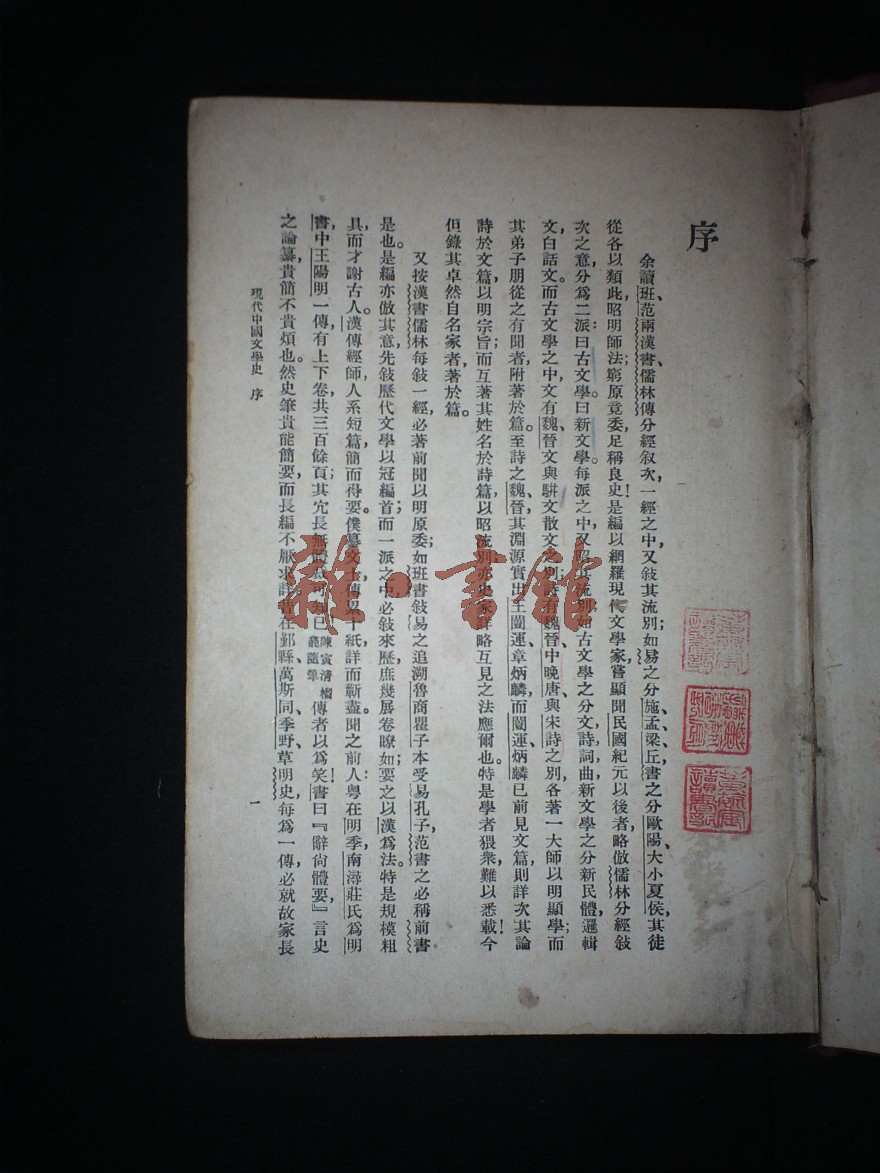 序
余讀班、范兩漢書儒林傳分經叙次，一經之中，又敍其流別；如易之分施、孟、梁丘，書之分歐陽、大小夏侯，其徒
從各以類此，昭明師法；窮原竟委，足稱良史！是編以網羅現代文學家嘗顯聞民國紀元以後者，略倣儒林分經敍
次之意，分爲二派：曰古文學。曰新文學。每派之中，又昭其流別；如古文學之分文、詩、詞、曲，新文學之分新民體、邏輯
文、白話文。而古文學之中，文有魏、晉文與駢文散文之別，詩有魏晉、中晚唐、與宋詩之別，各著一大師以明顯學；而
其弟子朋從之有聞者，附著於篇。至詩之魏、晉，其淵源實出王闓運、章炳麟，而闓運、炳麟已前見文篇，則詳次其論
詩於文篇，以明宗旨；而互著其姓名於詩篇，以昭流別；亦史家詳略互見之法應爾也。特是學者猥衆，難以悉載；今
但錄其卓然自名家者，著於篇。
又按漢書儒林每敍一經，必著前聞以明原委；如班書敍易之追溯魯商瞿子木受易孔子，范書之必稱前書
是也。是編亦倣其意，先敍歷代文學以冠編首；而一派之中，必敍來歷，庶幾展卷瞭如；要之以漢爲法。特是規模粗
具，而才謝古人。漢傳經師，人系短篇，簡而得要。僕纂文士，傳累十紙，詳而蘄盡。聞之前人：粤在明季，南潯莊氏爲明
書，中王陽明一傳，有上下卷，共三百餘頁；其冗長無體爲可知已陳寅淸榴龕隨筆傳者以爲笑！書曰『辭尙體要，』言史
之論纂，貴簡不貴煩也。然史筆貴能簡要，而長編不厭求詳。昔在鄞縣萬斯同季野草明史，每爲一傳，必就故家長
現代中國文學史 序
一
雜·書館